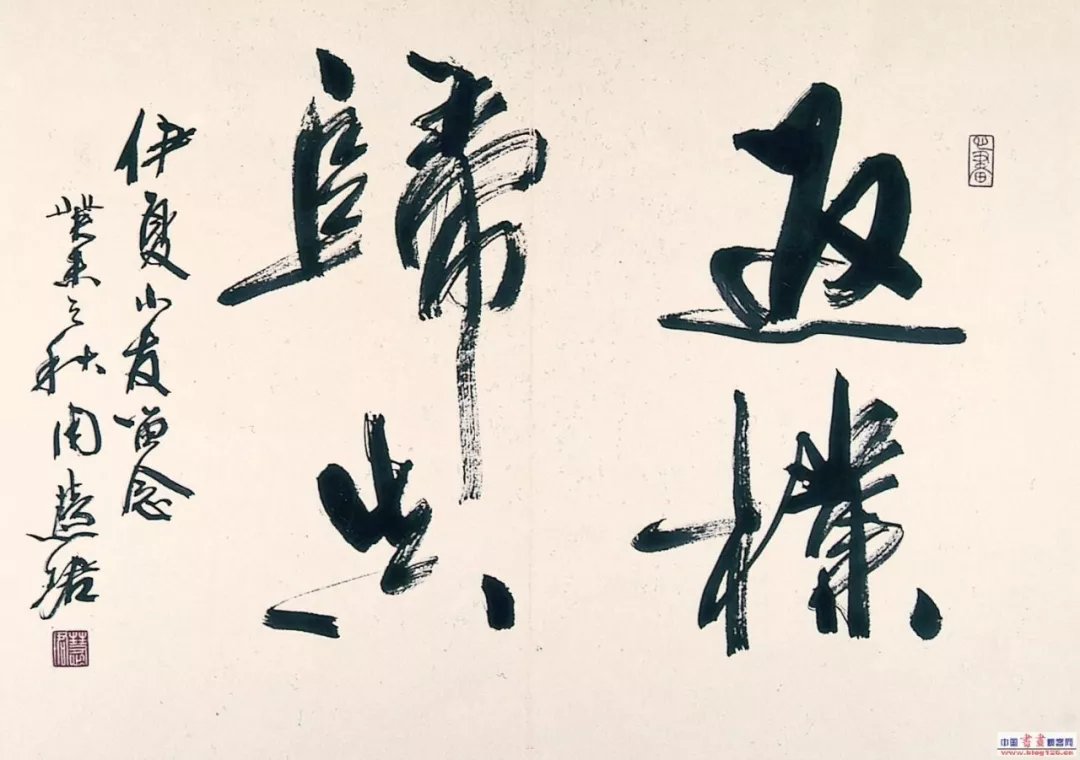 返樸
歸真
伊夏小友留念
癸未之秋周慧珺
中国書畫博客网
www.blog126.cn